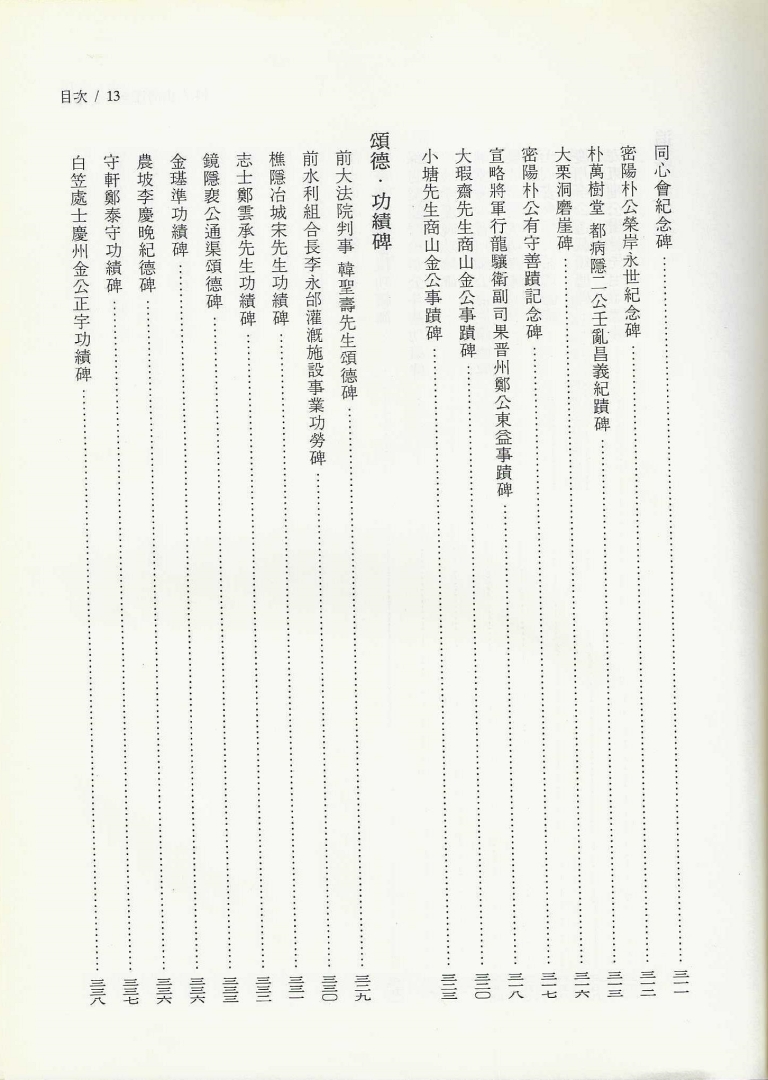 目次 / 13
同心會紀念碑 三一一
密陽朴公榮岸永世紀念碑 三一二
朴萬樹堂 都病隱二公壬亂昌義紀蹟碑 三一三
大栗洞磨崖碑 三一六
密陽朴公有守善蹟記念碑 三一七
宣略將軍行龍驤衛副司果晋州鄭公東益事蹟碑 三一八
大瑕齋先生商山金公事蹟碑 三二〇
小塘先生商山金公事蹟碑 三二三
頌德·功績碑
前大法院判事 韓聖壽先生頌德碑 三二九
前水利組合長李永邰灌漑施設事業功勞碑 三三〇
樵隱冶城宋先生功績碑 三三一
志士鄭雲承先生功績碑 三三二
鏡隱裵公通渠頌德碑 三三三
金瑾準功績碑 三三六
農坡李慶晚紀德碑 三三六
守軒鄭泰守功績碑 三三七
白笠處士慶州金公正宇功績碑 三三八